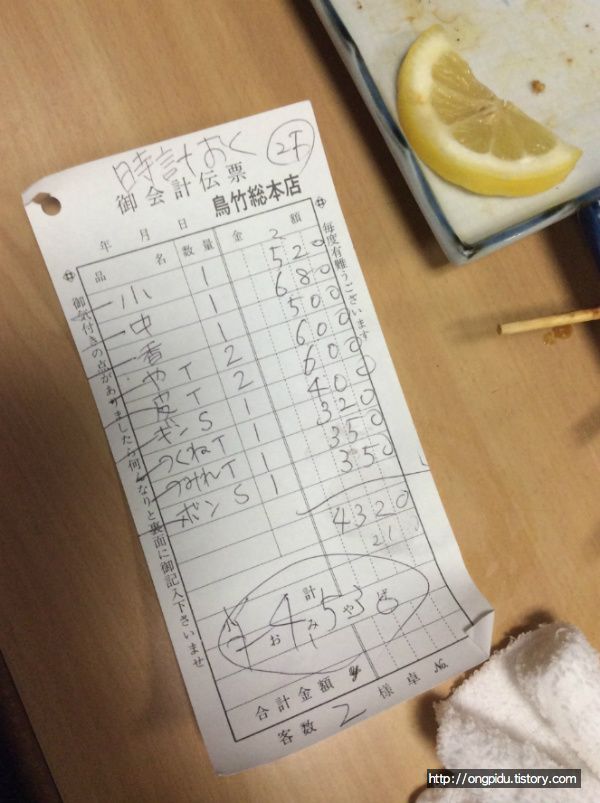 時計おく
2F
御会計伝票
鳥竹総本店
年 月 日
毎度有難うございます
御気付きの点がありましたら何んなりと裏面に御記入下さいませ
品 名 数量 金 額
2
小 1 520
中 1 680
香 1 500
や T 2 600
皮 T 2 600
ギン S 1 400
つくね T 1 320
つみれ T 1 350
ボン S 1 350
4320
計
おみやげ
4536
合計金額 ¥
客数 2 様 卓 No.
http://ongpidu.tistory.com